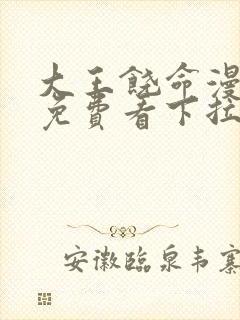 大王饶命漫
免费看下拉
安徽临泉韦寨